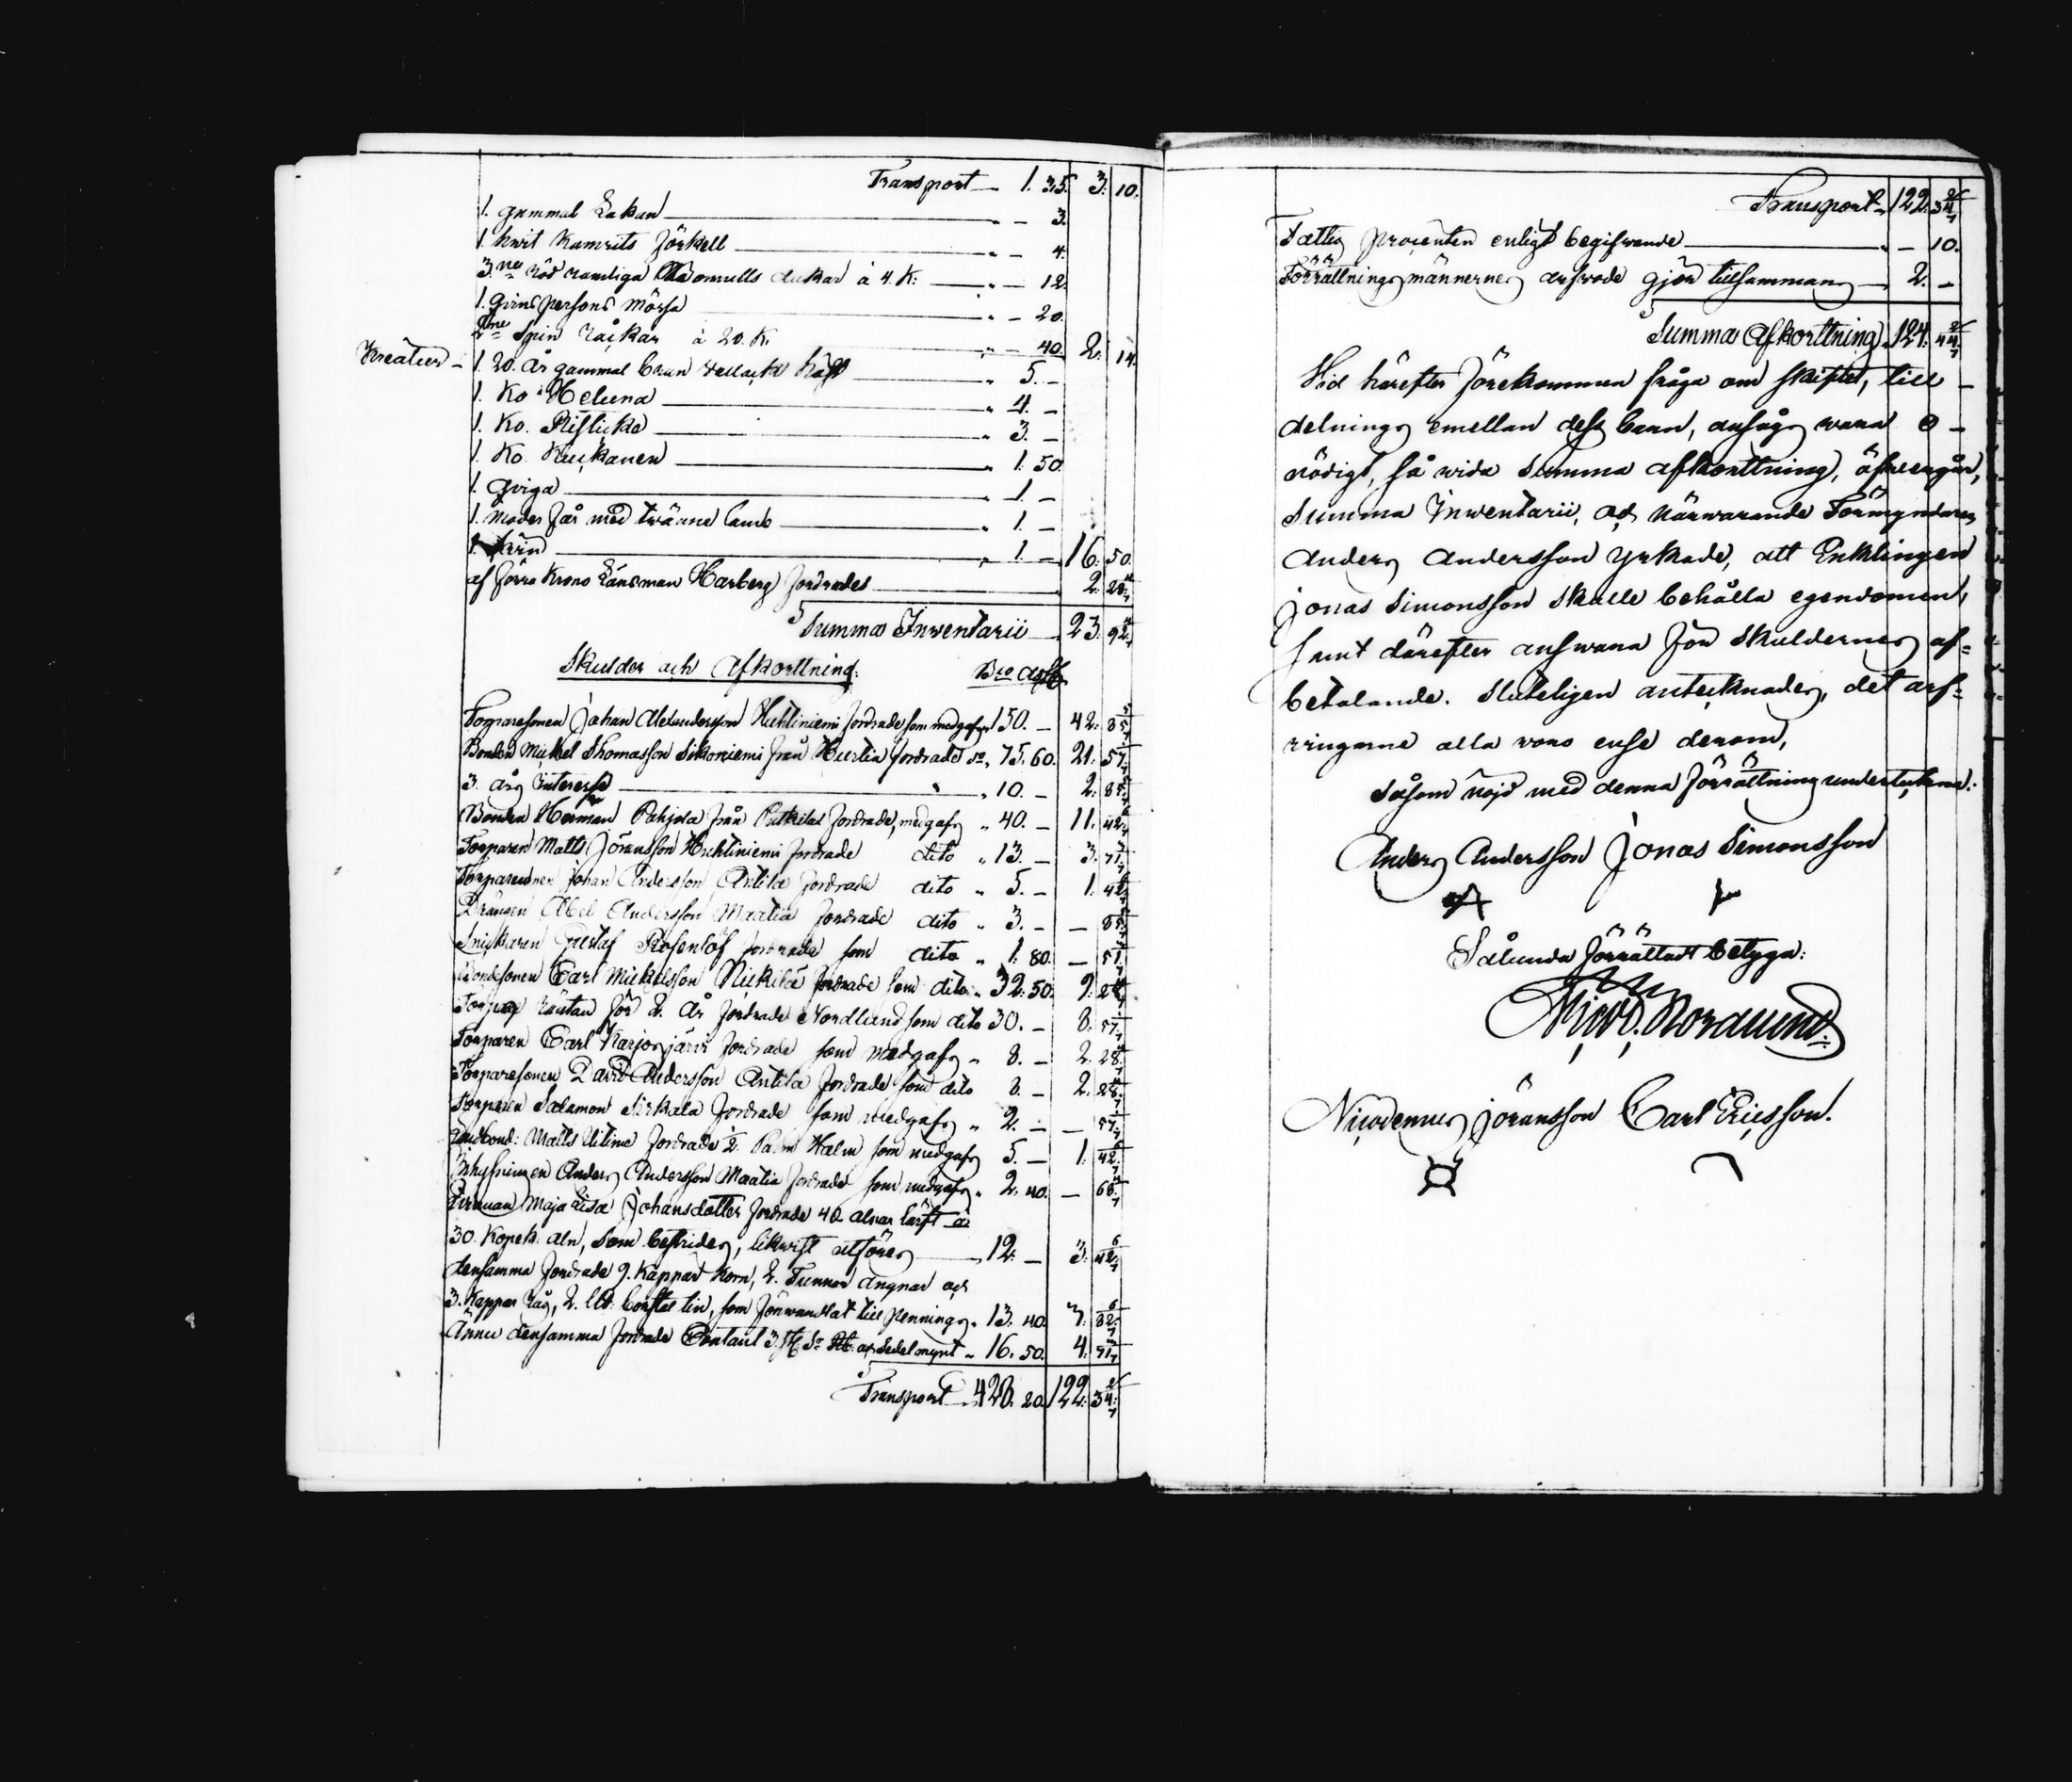 Transport 1. 35. 3. 10.
1. gammal Lakan " — 3.
1. hwit Kamrits förkell " — 4.
3.ne röd ramliga bomulls dukar à 4. K: " — 12.
1. qwinspersons Mössa " — 20.
2ne Spin råckar à 20. K. " — 40. 2. 14.
Kreatur — 1. 20. År gammal brun wallack häst " 5. —
1. Ko Heluna " 4. —
1. Ko. " 3. —
1. Ko. " 1. 50.
1. Qviga " 1. —
1. moder får med twänne lamb " 1. —
1. " 1. — 16. 50.
af förra Krono Länsman Harberg fordrades 2. 28 4/7
Summa Inwentarii 23. 92 4/7
Skulder och Afkorttning: Bco
Torparesonen Johan Alexandersson Huhtiniemi fordrade som medgafs 150. — 42. 85 5/7
Bonden Michel Thomasson Sikoniemi från fordrade do " 75. 60. 21.
3. års Interesse " 10. — 2. 85 5/7
Bonden Herman Pohjola från fordrade, medgafs " 40. — 11. 42 6/7
Torparen Matts Jöransson Huhtiniemi fordrade dito " 13. — 3. 71 3/7
Torparesonen Johan Andersson Antila fordrade dito " 5. — 1. 42 6/7
Drängen Abel Andersson Maatia fordrade dito " 3. — — 85 5/7
Snickaren Gustaf Rosenlöf fordrade som dito " 1. 80. — 51 3/7
Bondesonen Carl Mickelsson fordrade som dito " 32. 50. 9.
för 2. År fordrade Nordlund som dito 30. — 8. 57 1/7
Torparen Carl Karjosjärvi fordrade som medgafs " 8. — 2. 28 4/7
Torparesonen David Andersson Antila fordrade som dito 8. — 2. 28 4/7
Torparen Salamon Sirkala fordrade som medgafs " 2. — — 57 1/7
Matts fordrade ½ Halm som medgafs 5. — 1. 42 6/7
Inhysningen Anders Andersson Maatia fordrade som medgafs " 2. 40. — 68 4/7
Maja Lisa Johansdotter fordrade 40 alnar lärft à
30. Kopek. aln, som bestrides, likwist utföres 12. — 3. 42 6/7
densamma fordrade 9. Kappar Korn, 2. Tunnor angnar och
3. Kappar råg, 2. lin, som förwandlat till penningr " 13. 40. 3. 82 6/7
Ännu densamma fordrade Contant 3. Sedelmynt " 16. 50. 4. 71 3/7
Transport 428. 20. 122. 34 2/7
Transport 122. 34 2/7
Fattig procenten enligt begifwande " — 10.
Förrättningsmännernes arfwode gjör tillsammans 2. —
Summa Afkorttning 124. 44 2/7
Wid härefter förekommen fråga om skiftet, till —
delnings emellan dess barn, ansågs wara o —
nödigt, så wida Summa afkorttning, öfwergår,
Summa Inwentarii, och närwarande Förmyndaren
Anders Andersson yrkade, att Enklingen
Jonas Simonsson skulle behålla egendomen,
samt därefter answara för skuldernes af=
betalande. Sluteligen antecknades, det arf=
wingarne alla woro ense derom,
Såsom nöjd med denna förrättning underteckna:
Anders Andersson Jonas Simonsson
Sålunda förrättadt betyga:
Nicod. Nordlund
Nicodemus Jöransson Carl Ericsson.